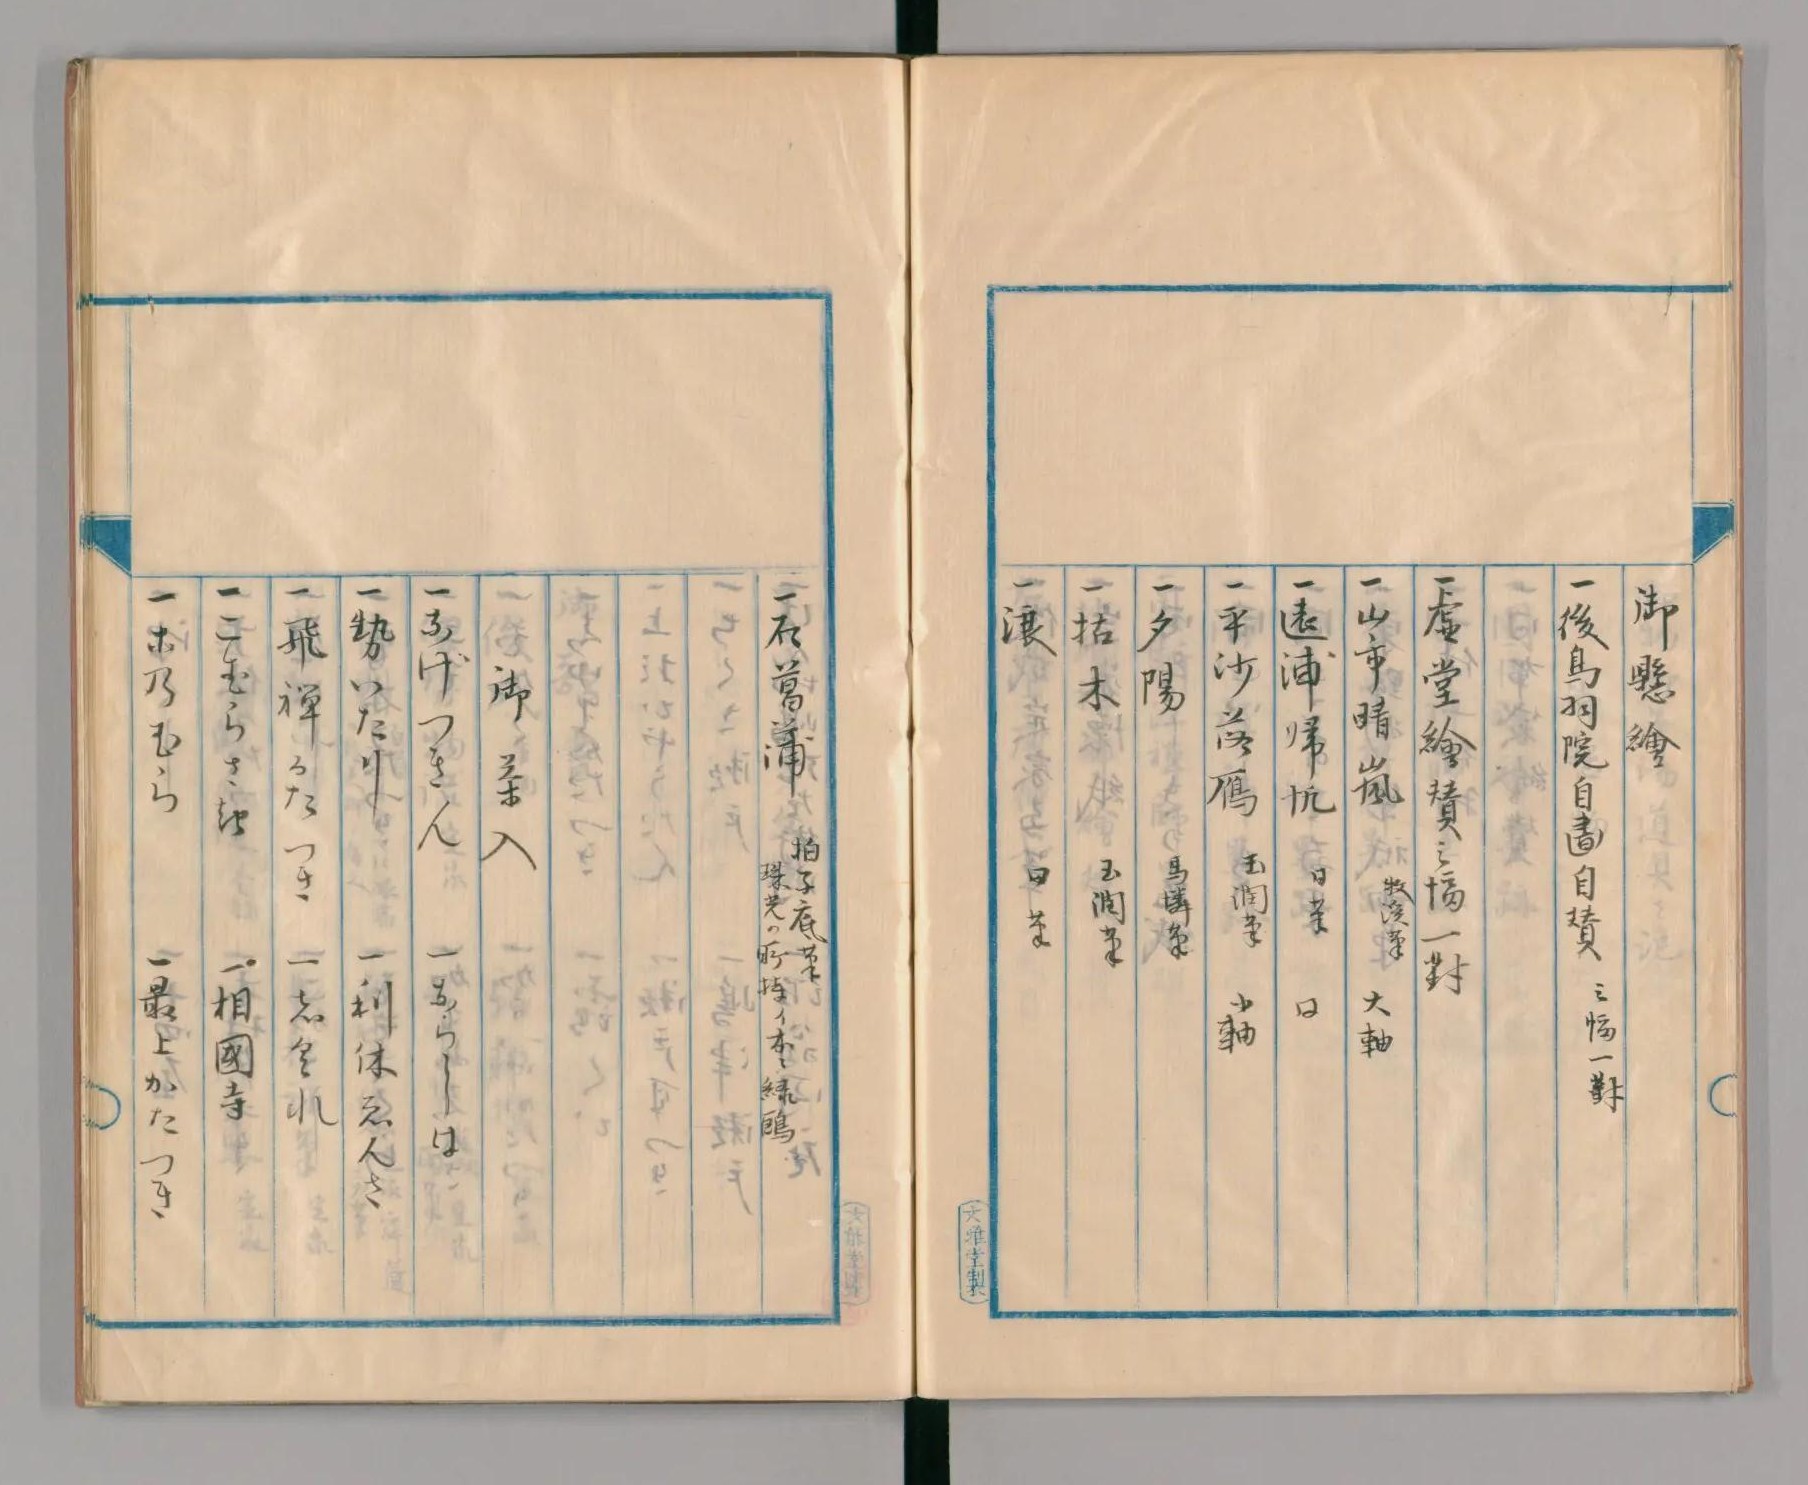 御懸繪
一後鳥羽院自畵自賛 三幅一對
一虚堂繪賛三幅一對
一山市晴嵐 牧渓筆 大軸
一遠浦帰帆 日筆 日
一平沙落雁 玉潤筆 小軸
一夕陽 馬麟筆
一枯木 玉潤筆
一瀼 日筆
文雅堂製
一石菖蒲 拍子底筆
珠光の所持イ本ニ緑鷗
御茶入
一なげつきん 一ならしは
一勢いたか 一利休ゑんさ
一飛禅かたつき 一志くれ
一こむらさき 一相國寺
一木乃むら 一最上かたつき